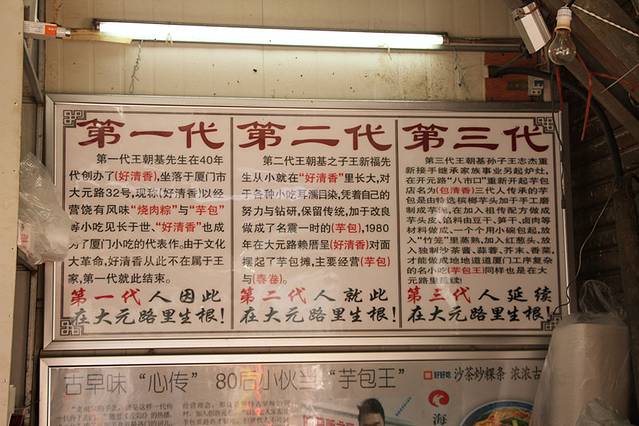 第一代
第一代王朝基先生在40年
代创办了(好清香),坐落于厦门市
大元路32号,现称(好清香)以经
营饶有风味“烧肉粽”与“芋包”
等小吃见长于世、“好清香”也成
为了厦门小吃的代表作。由于文化
大革命,好清香从此不在属于王
家,第一代就此结束。
第一代人因此
在大元路里生根!
第二代
第二代王朝基之子王新福先
生从小就在“好清香”里长大,对
于各种小吃耳濡目染,凭着自己的
努力与钻研,保留传统,加于改良
做成了名震一时的(芋包),1980
年在大元路赖厝里(好清香)对面
摆起了芋包摊,主要经营(芋包)
与(春卷)。
第二代人就此
在大元路里生根!
第三代
第三代王朝基孙子王志杰重
新接手继承家族事业另起炉灶,
在开元路“八市口”重新开起芋包
店名为(包清香)三代人传承的芋
包是由特选槟榔芋头加于手工磨
制成芋泥,在加入祖传配方做成
芋头皮,馅料由豆干、笋干、卤肉等
材料做成、一个个用小碗包起,放
入“竹笼”里蒸熟,加入红葱头、放
入独制沙茶酱、蒜蓉、芥末、香菜,
才能做成地地道道厦门工序复杂
的名小吃(芋包王)同样也是在大
元路里延续!
第三代人延续
在大元路里生根!
古早味“心传” 80后小伙当“芋包王”
好好吃 沙茶炒粿条 浓浓古
海